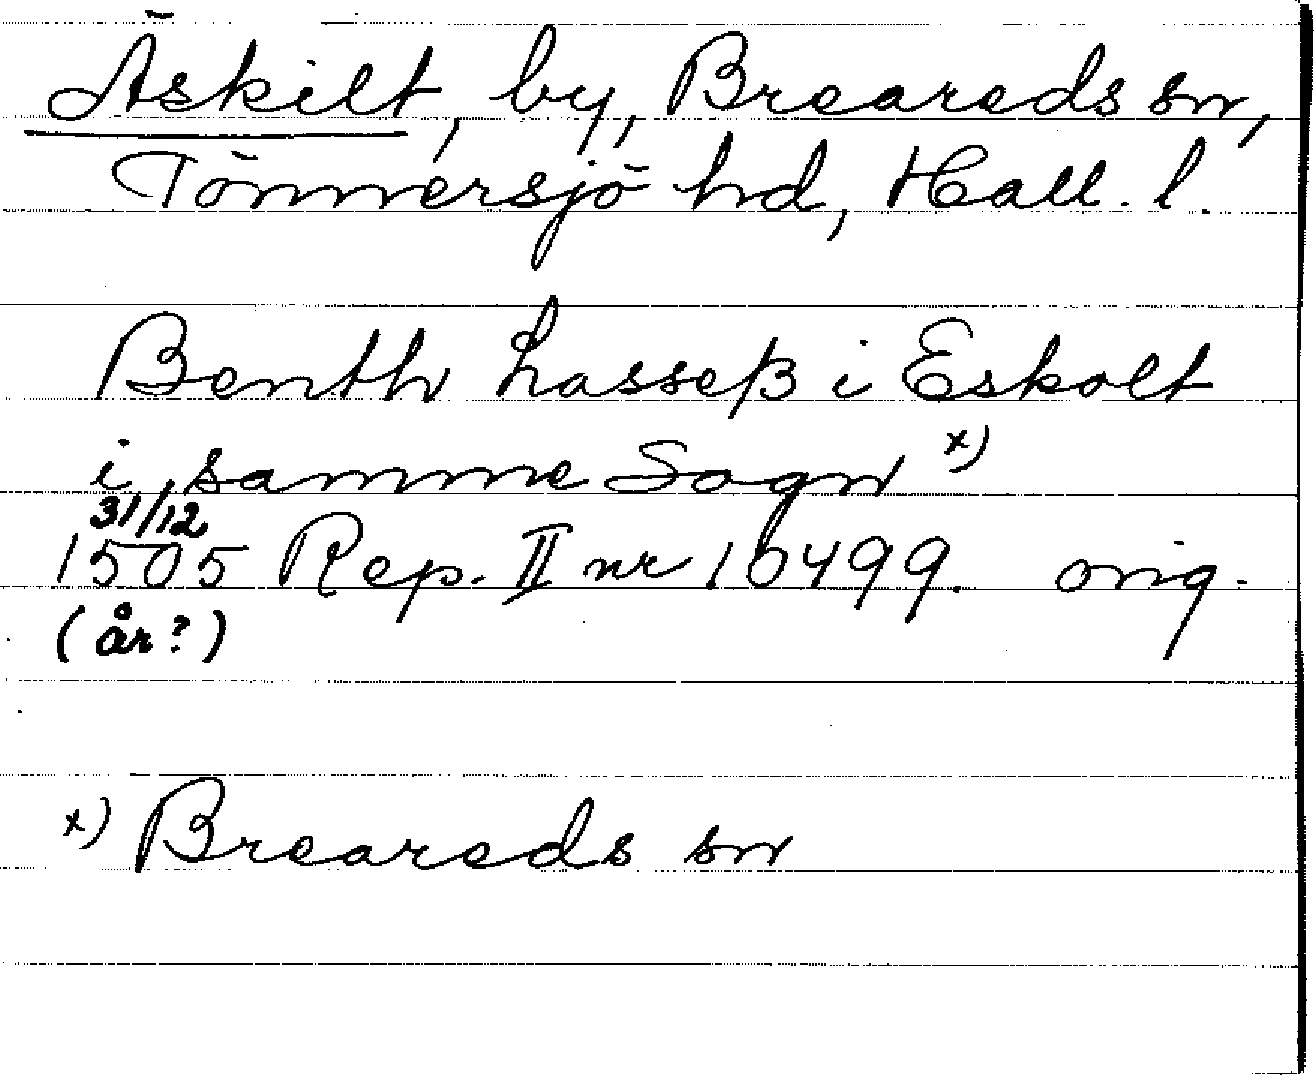 Äskilt, by, Breareds sn,
Tönnersjö hd, Hall. l.
Benth Lasseß i Eskolt
i samme Sogn x)
31/12
1505 Rep. II nr 10499. orig.
(år?)
x) Breareds sn